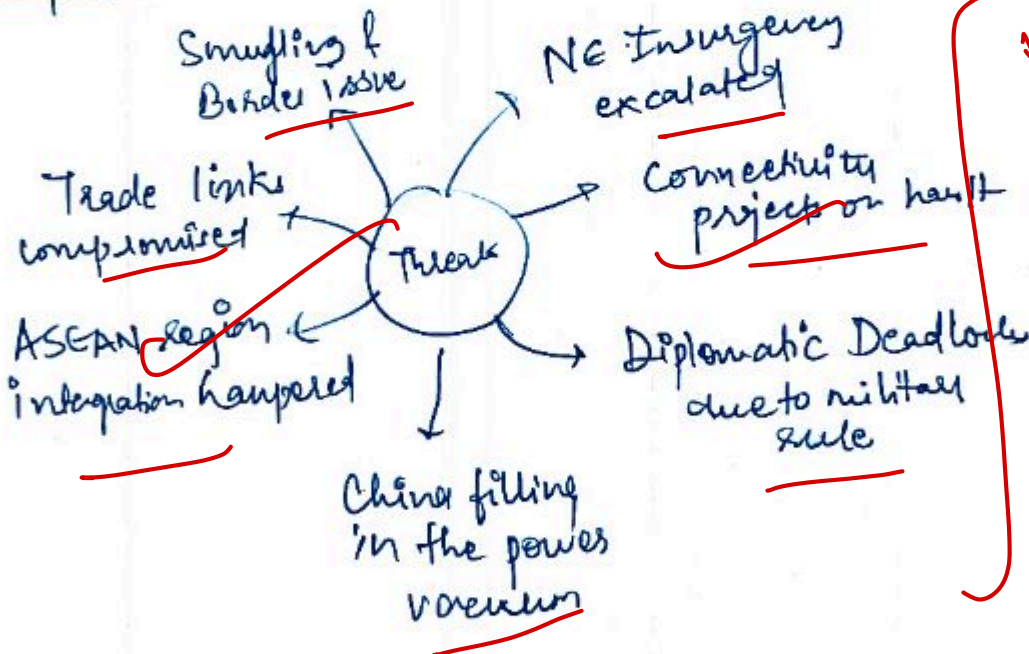 Smuggling &
Border issue
NE Insurgency
excalated
Trade links
compromised
Connectivity
projects on hault
Threats
ASEAN region
integration hampered
Diplomatic Deadlock
due to military
rule
China filling
in the power
vaccum